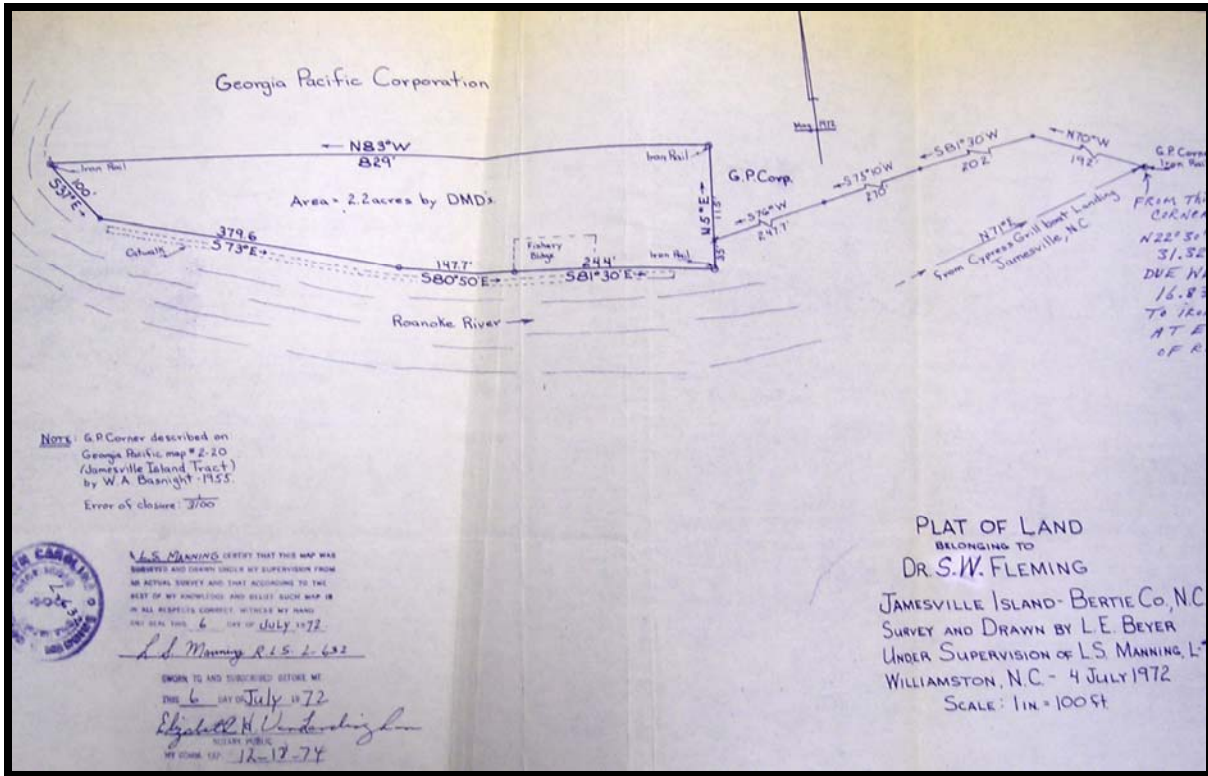 Georgia Pacific Corporation
Mag. 1972
N83°W
829'
Iron Rail
Iron Rail
100'
S37°E
Area = 2.2 acres by DMD's
G.P. Corp.
N5°E
115'
35'
S76°W
247.7'
S73°10'W
270'
S81°30'W
202'
N70°W
192'
G.P. Corner
Iron Rail
N71°E
From Cypress Grill boat Landing
Jamesville, N.C.
FROM THIS
CORNER
N22°30'
31.32
DUE
16.8
TO IRON
AT
OF
379.6
S73°E
Catwalk
147.7'
S80°50'E
Fishery
Bldgs
244'
S81°30'E
Iron Rail
Roanoke River
NOTE: G.P. Corner described on
Georgia Pacific map #2-20
(Jamesville Island Tract)
by W.A. Basnight-1955.
Error of closure: 1/3100
CAROLINA
I, L.S. MANNING CERTIFY THAT THIS MAP WAS
SURVEYED AND DRAWN UNDER MY SUPERVISION FROM
AN ACTUAL SURVEY AND THAT ACCORDING TO THE
BEST OF MY KNOWLEDGE AND BELIEF SUCH MAP IS
IN ALL RESPECTS CORRECT. WITNESS MY HAND
AND SEAL THIS 6 DAY OF JULY 1972.
L. S. Manning R.L.S. L-632
SWORN TO AND SUBSCRIBED BEFORE ME
THIS 6 DAY OF July 1972
Elizabeth H. VanLandingham
NOTARY PUBLIC
MY COMM. EXP. 12-18-74
PLAT OF LAND
BELONGING TO
DR. S.W. FLEMING
JAMESVILLE ISLAND - BERTIE CO., N.C.
SURVEY AND DRAWN BY L.E. BEYER
UNDER SUPERVISION OF L.S. MANNING, L-
WILLIAMSTON, N.C. - 4 JULY 1972
SCALE: 1 IN = 100 ft.